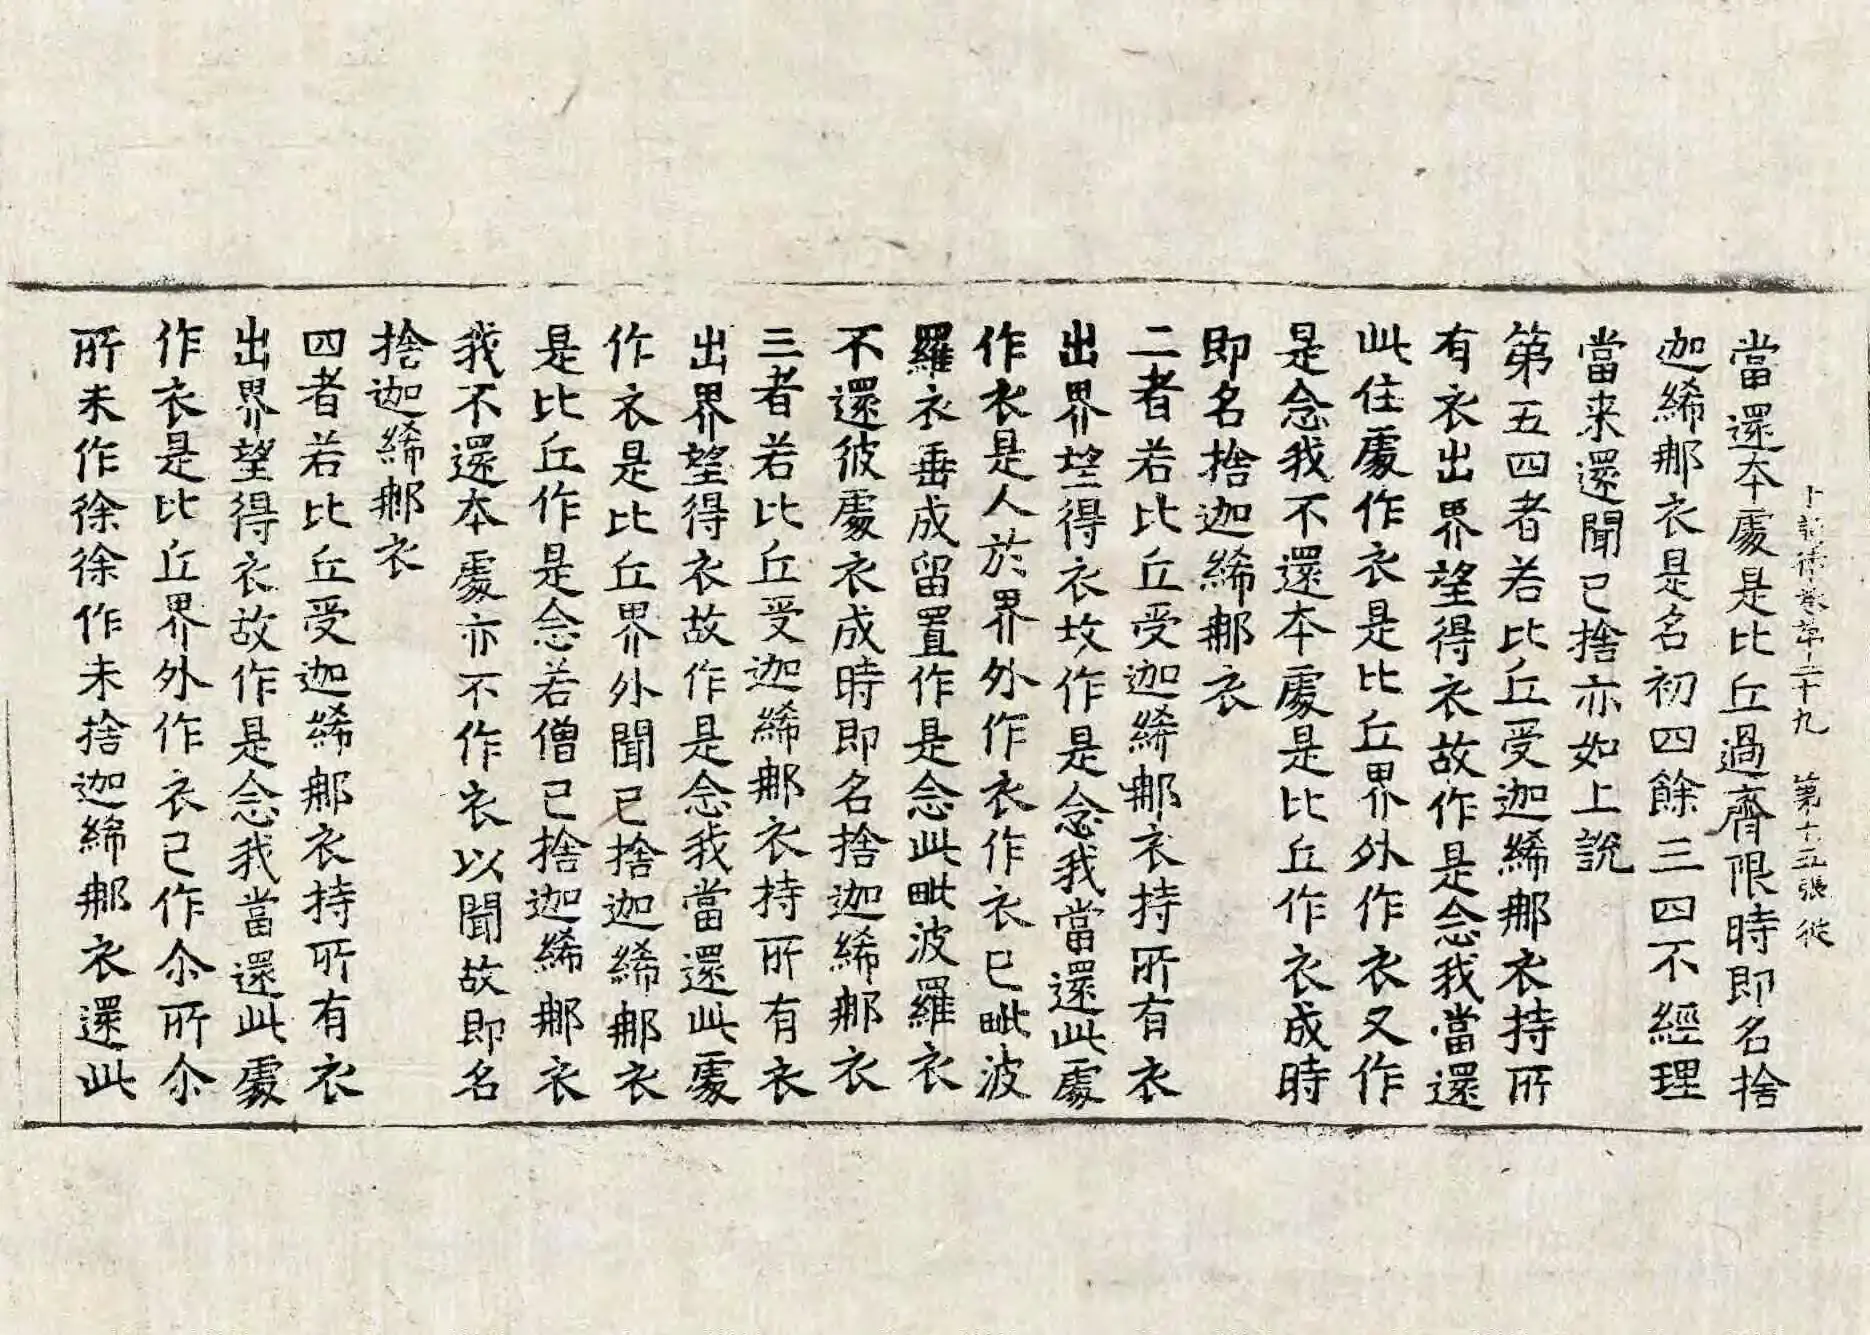 十誦律卷第二十九 第十五張 從
當還本處是比丘過齊限時即名捨
迦絺那衣是名初四餘三四不經理
當来還聞已捨亦如上說
第五四者若比丘受迦絺那衣持所
有衣出界望得衣故作是念我當還
此住處作衣是比丘界外作衣又作
是念我不還本處是比丘作衣成時
即名捨迦絺那衣
二者若比丘受迦絺那衣持所有衣
出界望得衣故作是念我當還此處
作衣是人於界外作衣作衣已毗波
羅衣垂成留置作是念此毗波羅衣
不還彼處衣成時即名捨迦絺那衣
三者若比丘受迦絺那衣持所有衣
出界望得衣故作是念我當還此處
作衣是比丘界外聞已捨迦絺那衣
是比丘作是念若僧已捨迦絺那衣
我不還本處亦不作衣以聞故即名
捨迦絺那衣
四者若比丘受迦絺那衣持所有衣
出界望得衣故作是念我當還此處
作衣是比丘界外作衣已作尒所尒
所未作徐徐作未捨迦絺那衣還此